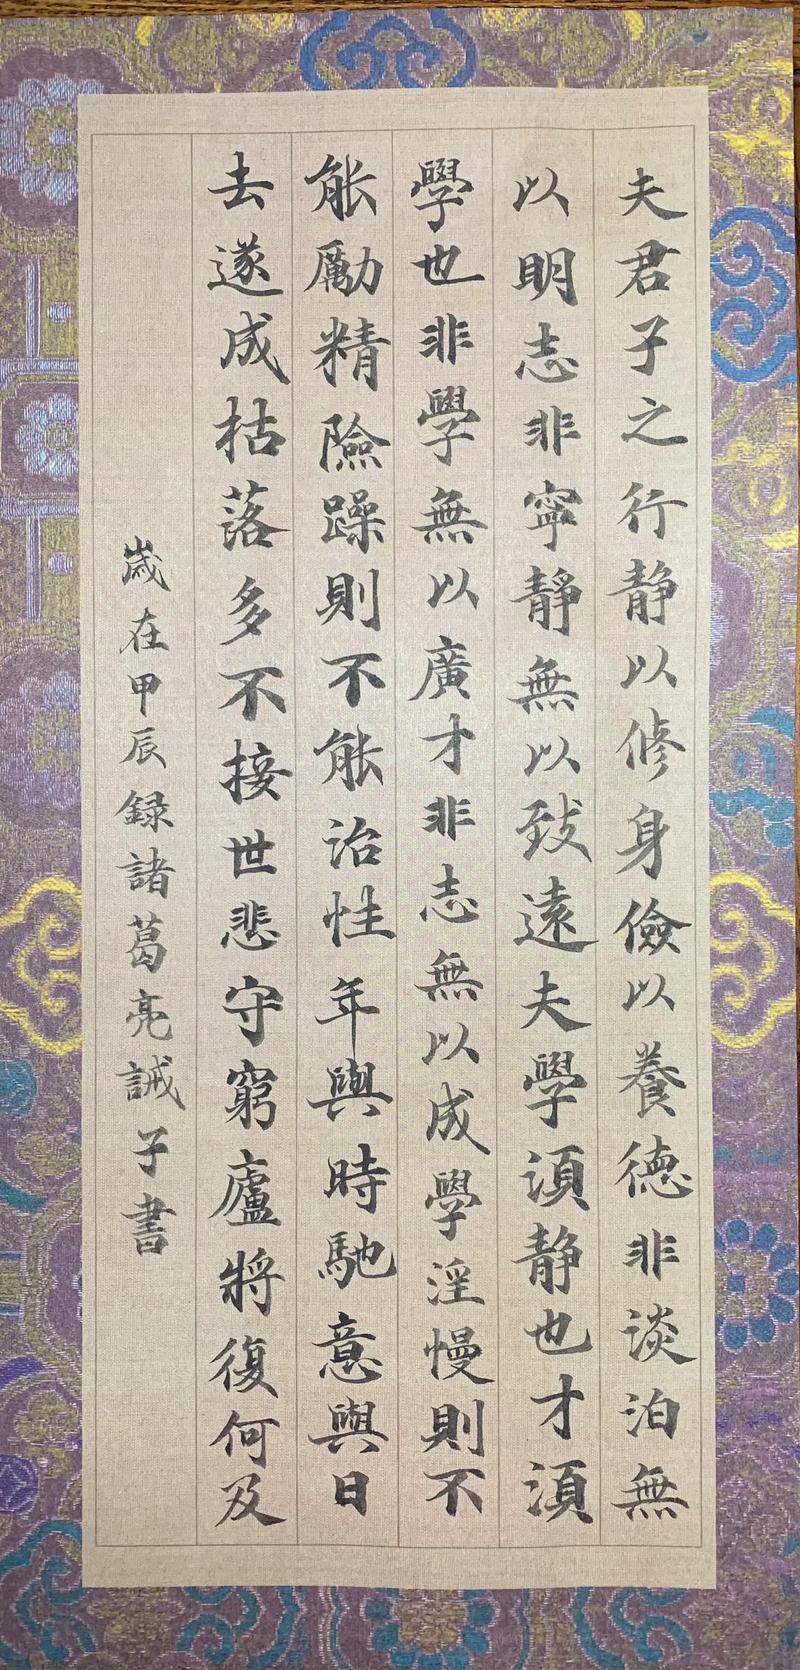 夫君子之行静以修身儉以養德非談泊無
以明志非寧靜無以致遠夫學須静也才須
學也非學無以廣才非志無以成學淫慢則不
能勵精險躁則不能治性年與時馳意與日
去遂成枯落多不接世悲守窮廬將復何及
歲在甲辰録諸葛亮誡子書